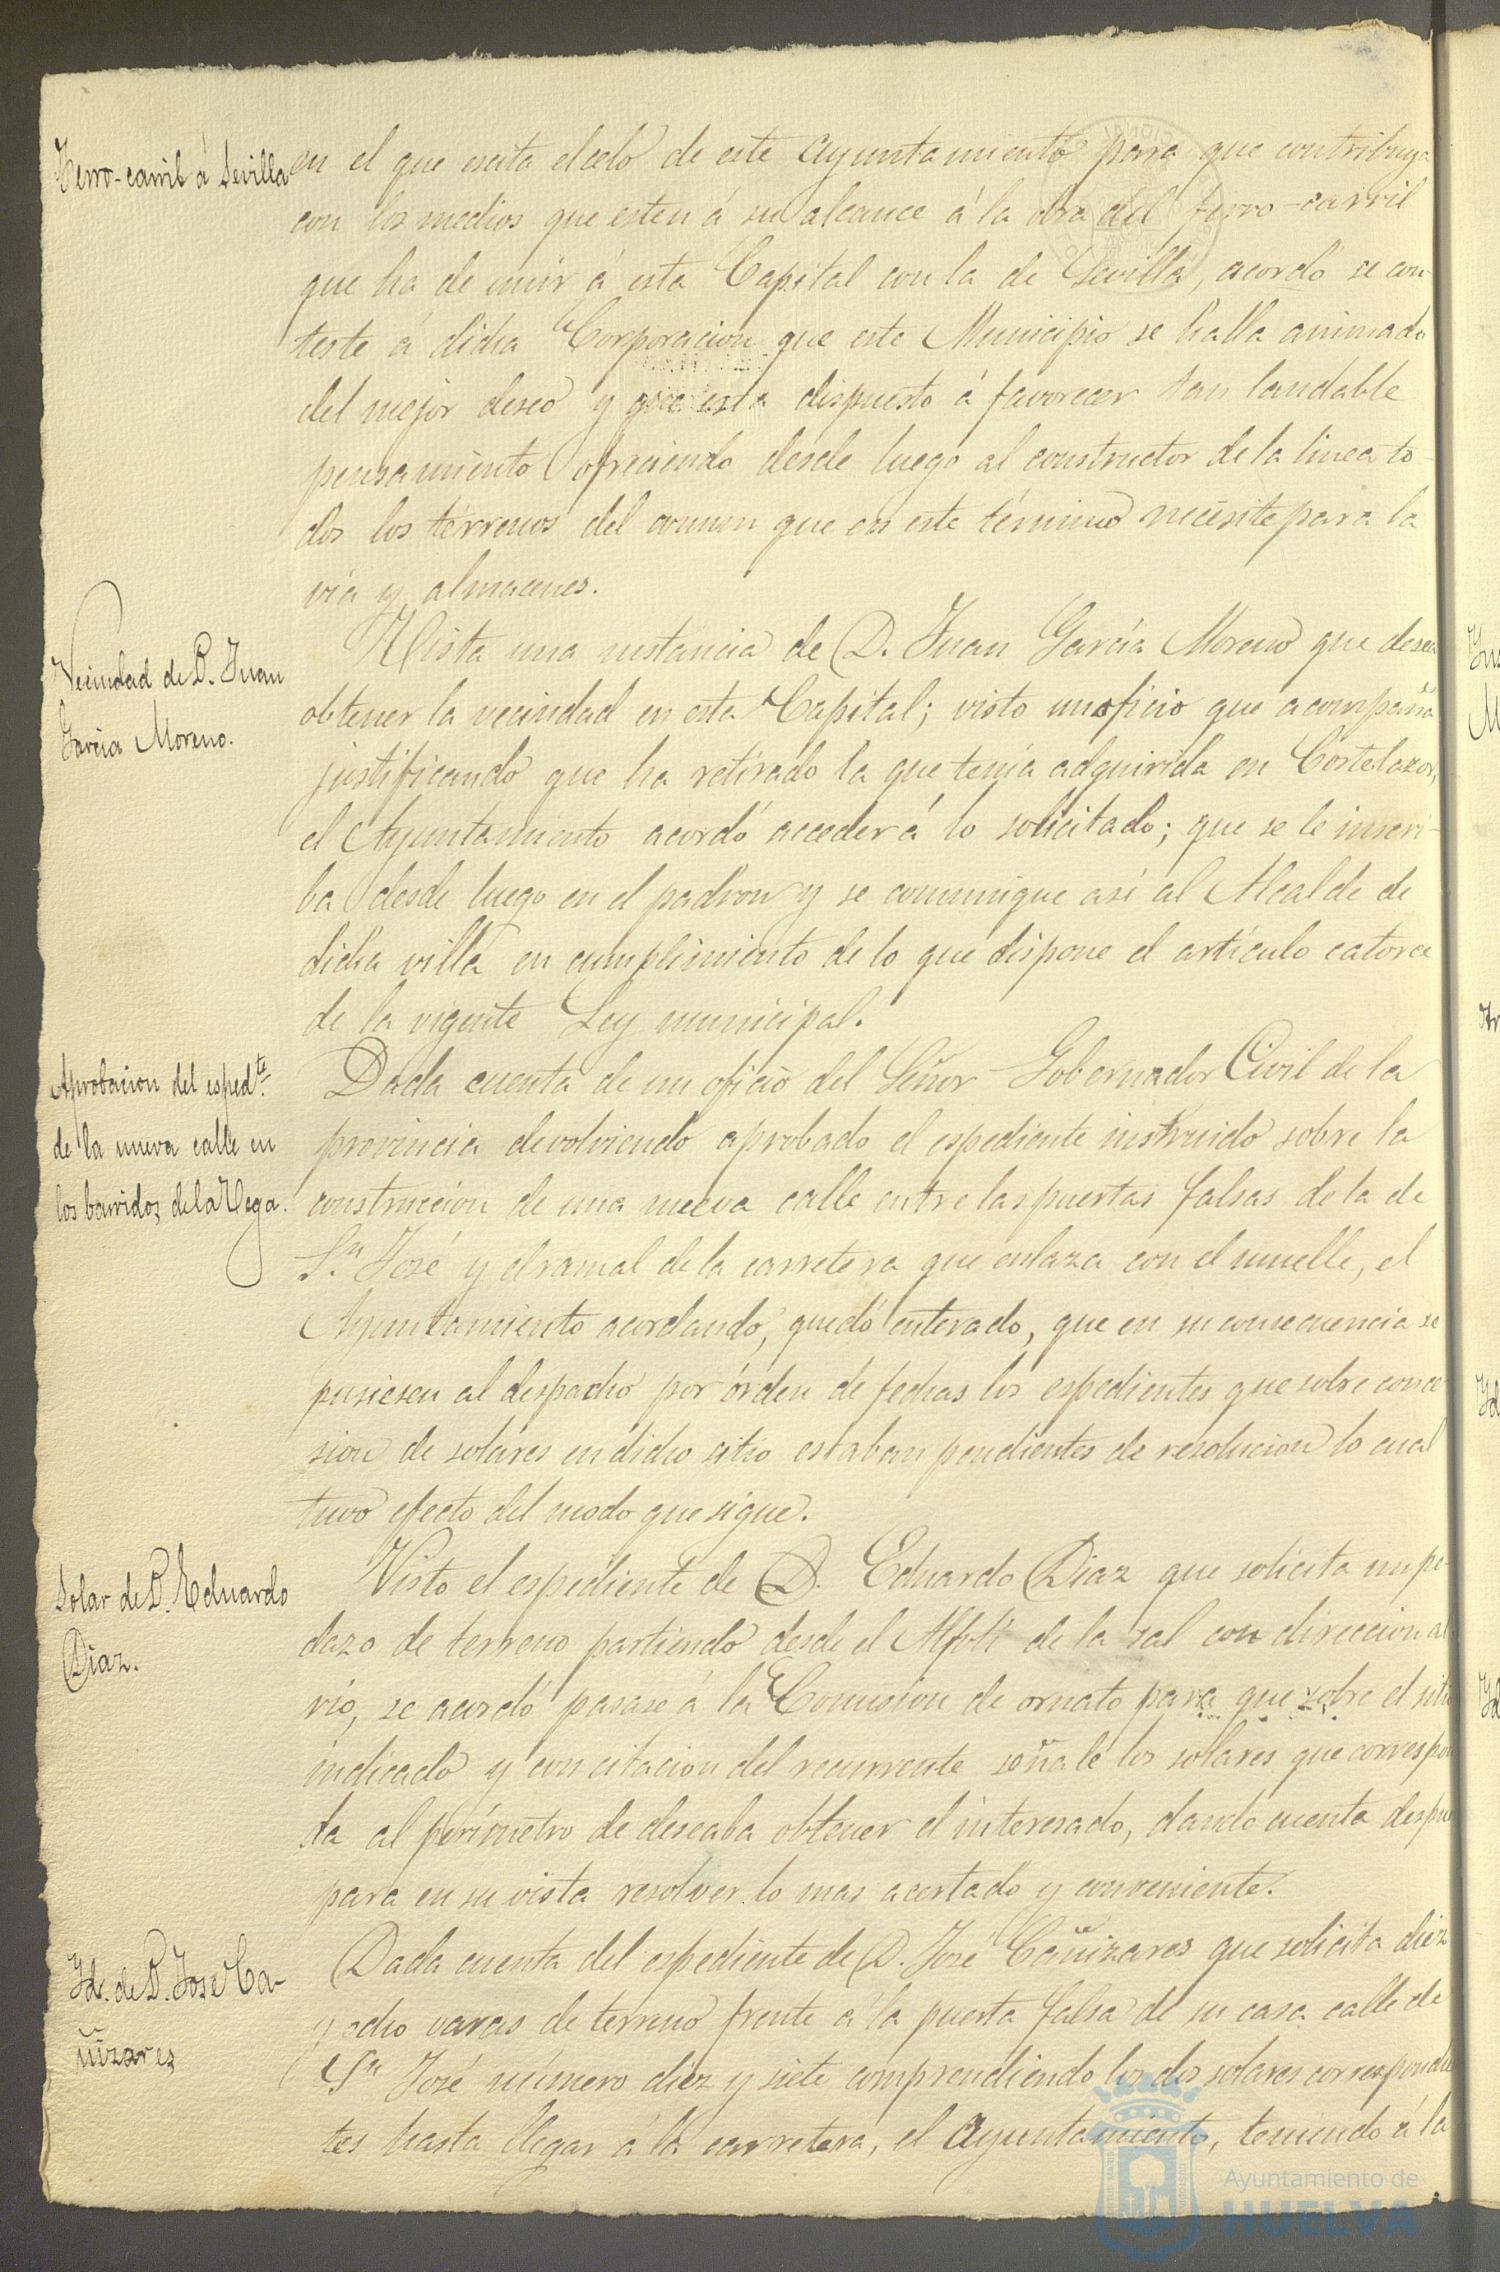 Ferro-carril á Sevilla
en el que escita el celo de este Ayuntamiento para que contribuya
con los medios que esten á su alcance á la obra del ferro-carril
que ha de unir á esta Capital con la de Sevilla, acordó se con-
teste á dicha Corporacion que este Municipio se halla animado
del mejor deseo y que está dispuesto á favorecer tan laudable
pensamiento ofreciendo desde luego al constructor de la linea to-
dos los terrenos del comun que en este término necesite para la
via y almacenes.
Vecindad de D. Juan
Garcia Moreno.
Vista una instancia de D. Juan García Moreno que desea
obtener la vecindad en esta Capital; visto un oficio que acompaña
justificando que ha retirado la que tenía adquirida en Cortelazor,
el Ayuntamiento acordó acceder á lo solicitado; que se le inscri-
ba desde luego en el padron y se comunique así al Alcalde de
dicha villa en cumplimiento de lo que dispone el artículo catorce
de la vigente Ley municipal.
Aprobacion del espedte.
de la nueva calle en
los barridos de la Vega.
Dada cuenta de un oficio del Señor Gobernador Civil de la
provincia devolviendo aprobado el espediente instruido sobre la
construccion de una nueva calle entre las puertas falsas de la de
Sn. José y el ramal de la carretera que enlaza con el muelle, el
Ayuntamiento acordando, quedó enterado, que en su consecuencia se
pusiesen al despacho por órden de fechas los espedientes que sobre conce-
sion de solares en dicho sitio estaban pendientes de resolucion lo cual
tuvo efecto del modo que sigue.
Solar de D. Eduardo
Diaz.
Visto el espediente de D. Eduardo Diaz que solicita un pe-
dazo de terreno partiendo desde el Alfolí de la sal con direccion al
rio, se acordó pasase á la Comision de ornato para que sobre el sitio
indicado y con citacion del recurrente señale los solares que correspon
da al perímetro de deseaba obtener el interesado, dando cuenta despues
para en su vista resolver lo mas acertado y conveniente.
Id. de D. José Ca-
ñizares
Dada cuenta del espediente de D. José Cañizares que solicita diez
y ocho varas de terreno frente á la puerta falsa de su casa calle de
Sn José número diez y siete comprendiendo los dos solares correspondien
tes hasta llegar á la carretera, el Ayuntamiento, teniendo á la
Ayuntamiento de
HUELVA